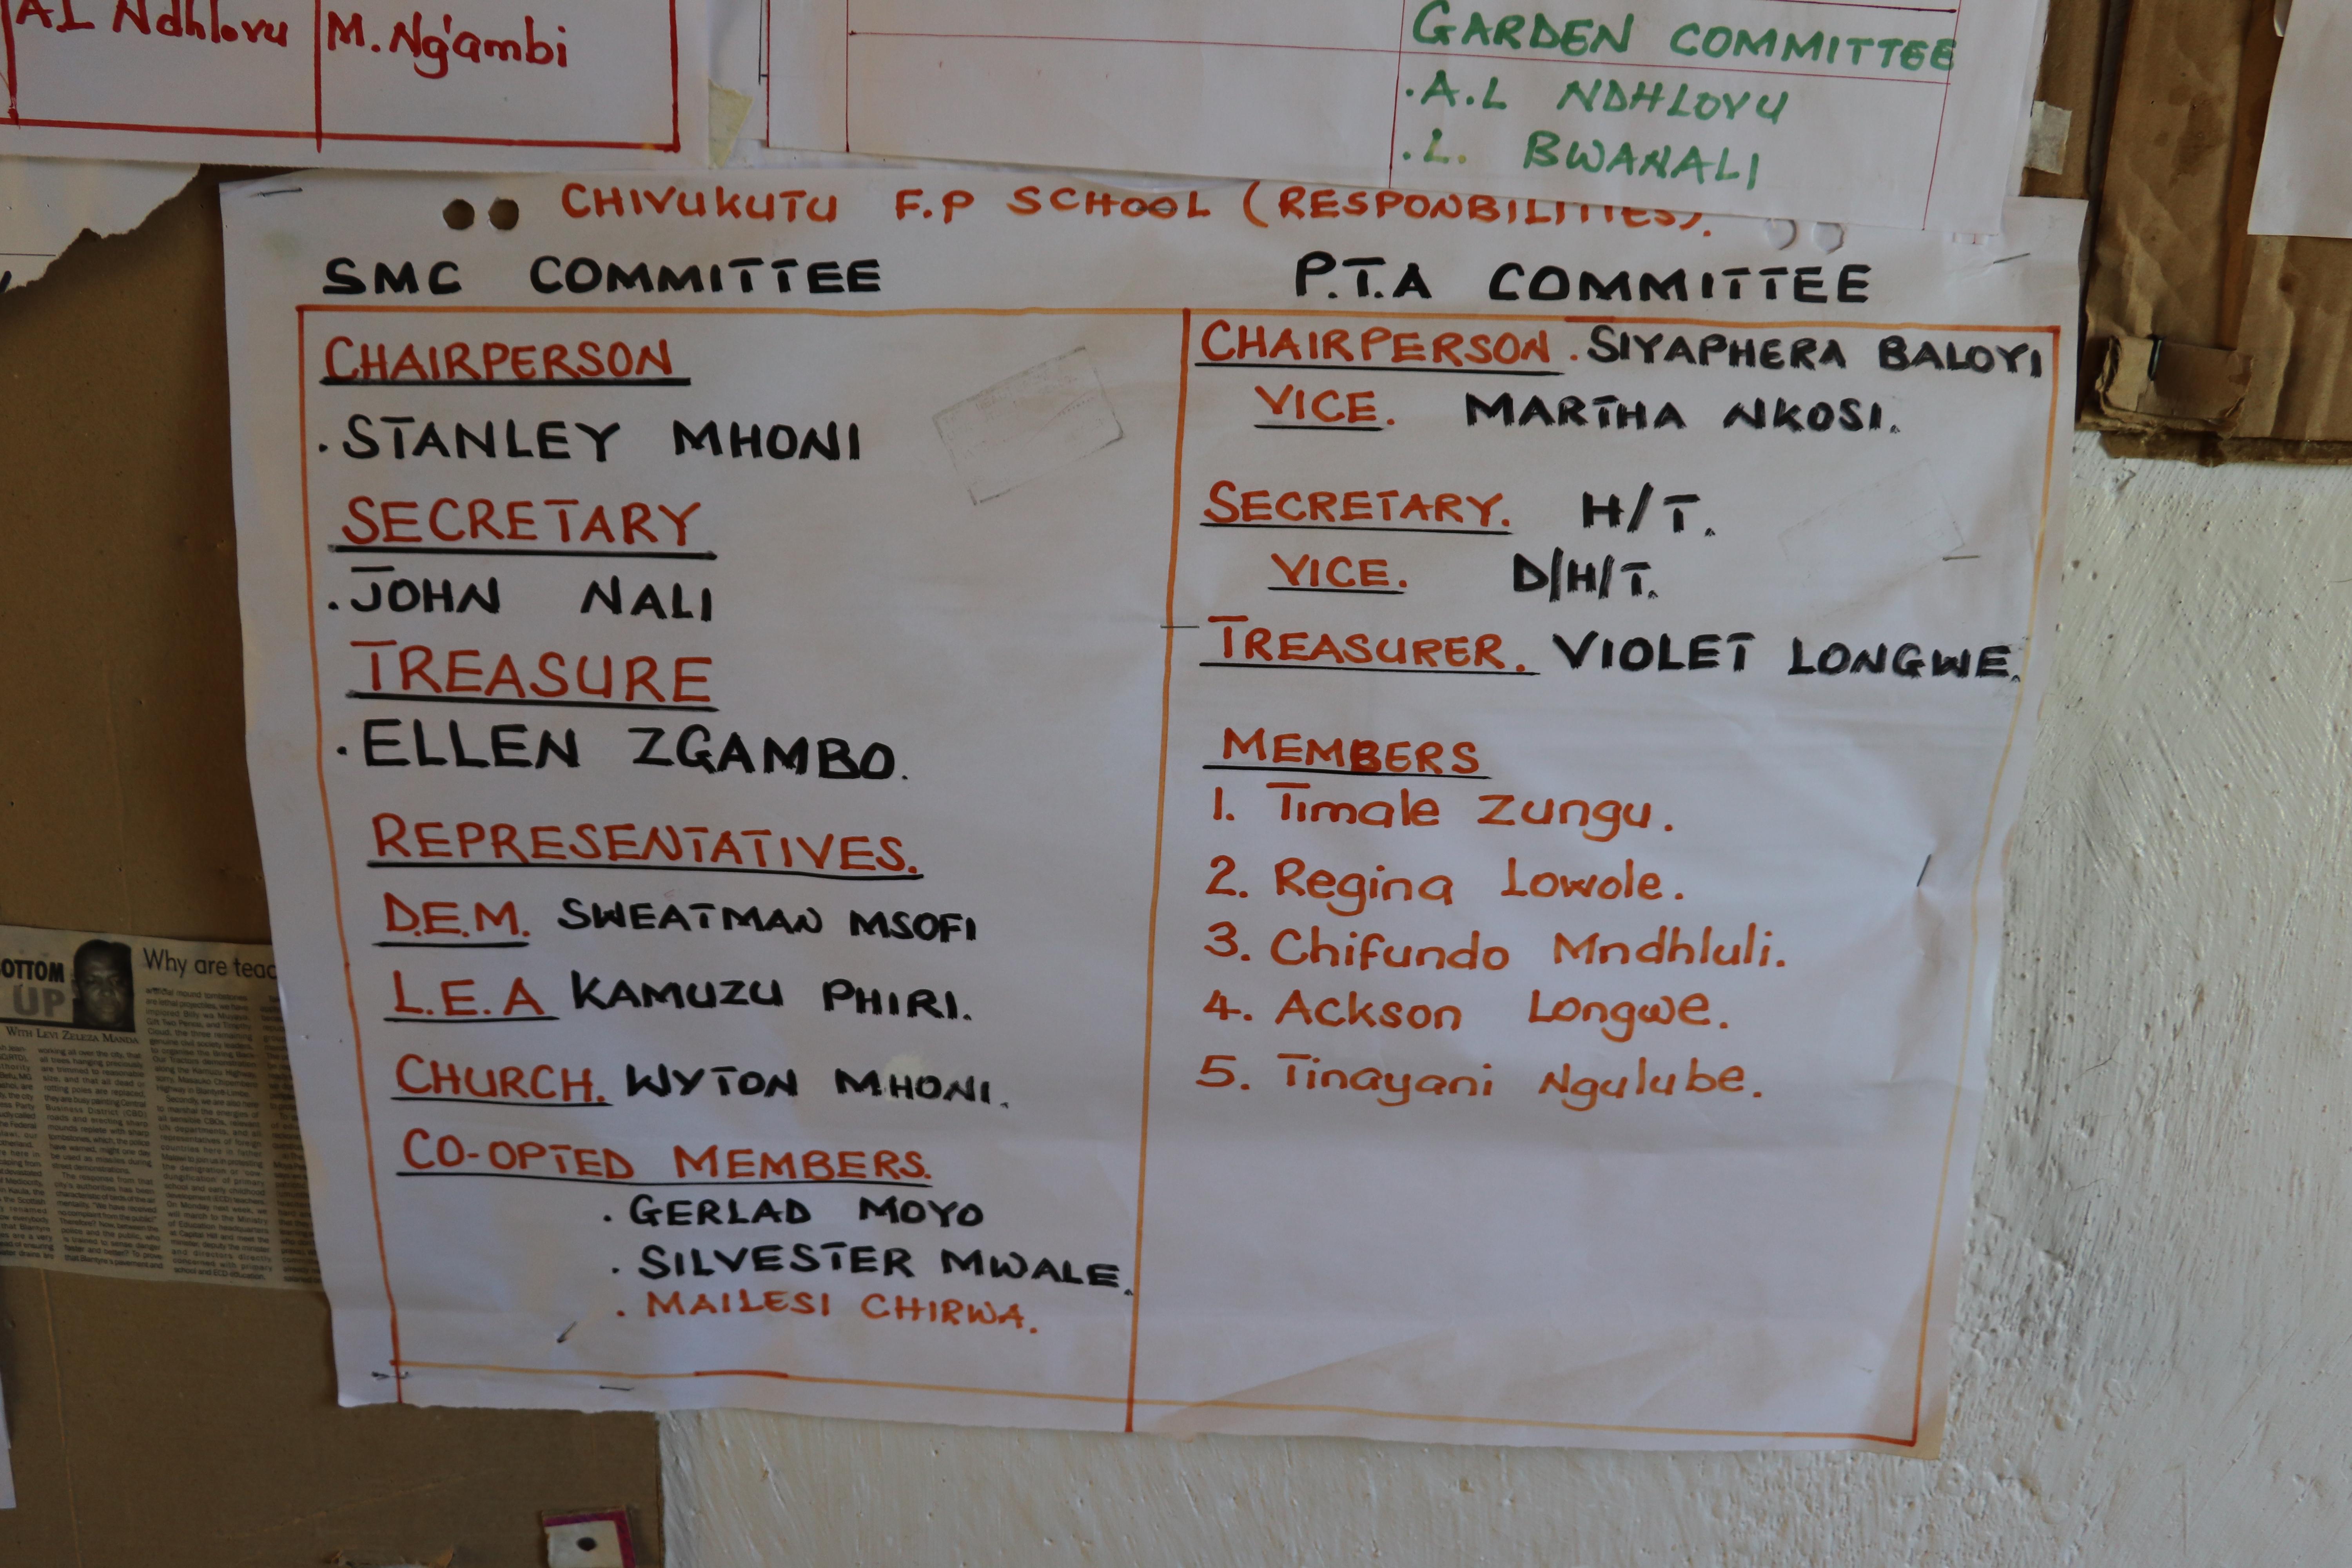 A.L Ndhlovu M. Ng'ambi
GARDEN COMMITTEE
.A.L NDHLOVU
.L. BWANALI
CHIVUKUTU F.P SCHOOL (RESPONBILITIES).
SMC COMMITTEE
CHAIRPERSON
.STANLEY MHONI
SECRETARY
.JOHN NALI
TREASURE
.ELLEN ZGAMBO.
REPRESENTATIVES.
D.E.M. SWEATMAN MSOFI
L.E.A KAMUZU PHIRI.
CHURCH. WYTON MHONI.
CO-OPTED MEMBERS.
. GERLAD MOYO
. SILVESTER MWALE.
. MAILESI CHIRWA.
P.T.A COMMITTEE
CHAIRPERSON. SIYAPHERA BALOYI
VICE. MARTHA NKOSI.
SECRETARY. H/T.
VICE. D/H/T.
TREASURER. VIOLET LONGWE.
MEMBERS
1. Timale Zungu.
2. Regina Lowole.
3. Chifundo Mndhluli.
4. Ackson Longwe.
5. Tinayani Ngulube.
OTTOM
UP
WITH LEVI ZELEZA MANDA
Why are teac